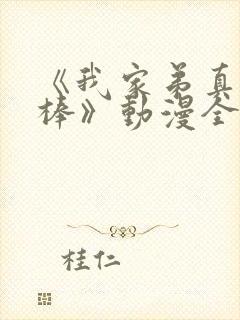 《我家弟真
棒》動漫全
桂仁